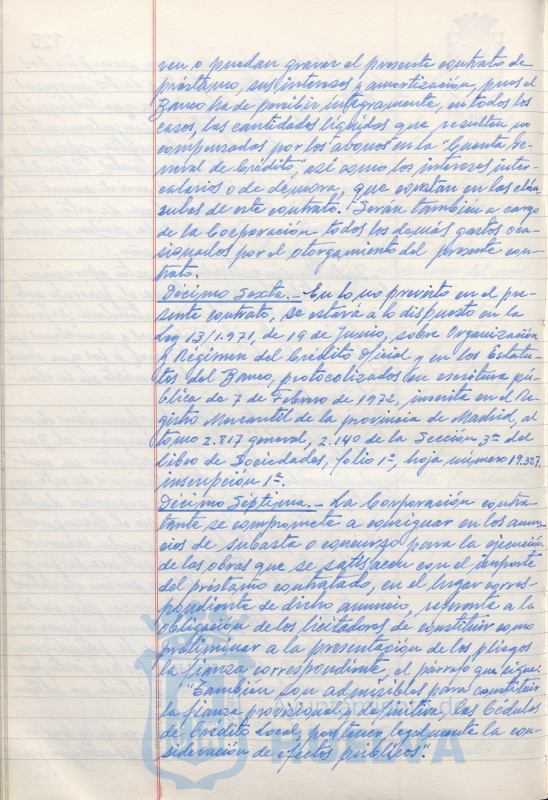 ven o puedan gravar el presente contrato de
préstamo, sus intereses y amortización, pues el
Banco ha de percibir íntegramente, en todos los
casos, las cantidades líquidas que resulten no
compensadas por los abonos en la "Cuenta Ge-
neral de Crédito", así como los intereses inter-
calarios o de demora, que constan en las cláu-
sulas de este contrato. Serán también a cargo
de la Corporación todos los demás gastos oca-
sionados por el otorgamiento del presente con-
trato.
Décimo Sexta.- En lo no previsto en el pre-
sente contrato, se estará a lo dispuesto en la
Ley 13/1.971, de 19 de Junio, sobre Organización
y Régimen del Crédito Oficial y en los Estatu-
tos del Banco, protocolizados en escritura pú-
blica de 7 de Febrero de 1972, inscrita en el Re-
gistro Mercantil de la provincia de Madrid, al
tomo 2.817 general, 2.140 de la Sección 3ª del
Libro de Sociedades, folio 1º, hoja número 19.327,
inscripción 1ª.
Décimo Séptima.- La Corporación contra-
tante se compromete a consignar en los anun-
cios de subasta o concurso para la ejecución
de las obras que se satisfacen con el importe
del préstamo contratado, en el lugar corres-
pondiente de dicho anuncio, referente a la
obligación de los licitadores de constituir como
preliminar a la presentación de los pliegos
la fianza correspondiente, el párrafo que sigue:
"También son admisibles para constituir
la fianza provisional y definitiva, las Cédulas
de Crédito Local, por tener legalmente la con-
sideración de efectos públicos".